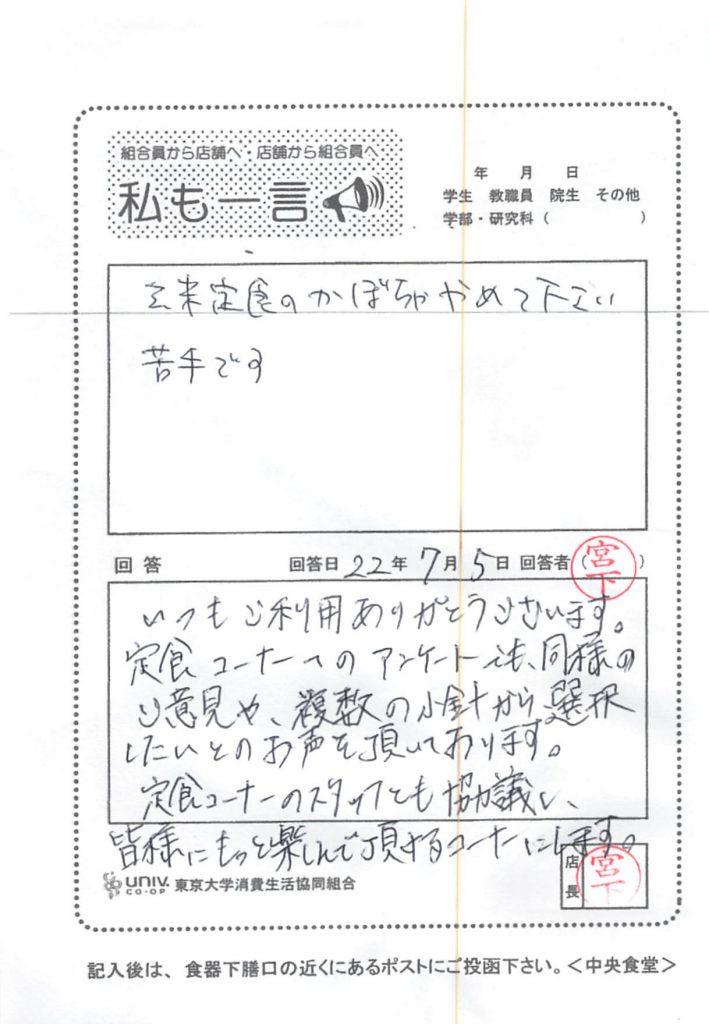 組合員から店舗へ・店舗から組合員へ
私も一言
年 月 日
学生 教職員 院生 その他
学部・研究科( )
玄米定食のかぼちゃやめて下さい
苦手です
回答 回答日 22年 7月 5日 回答者(宮下)
いつもご利用ありがとうございます。
定食コーナーへのアンケートでも、同様の
ご意見や、複数の小鉢から選択
したいとのお声を頂いております。
定食コーナーのスタッフとも協議し、
皆様にもっと楽しんで頂けるコーナーにします。
UNIV. CO-OP 東京大学消費生活協同組合
店長 宮下
記入後は、食器下膳口の近くにあるポストにご投函下さい。<中央食堂>